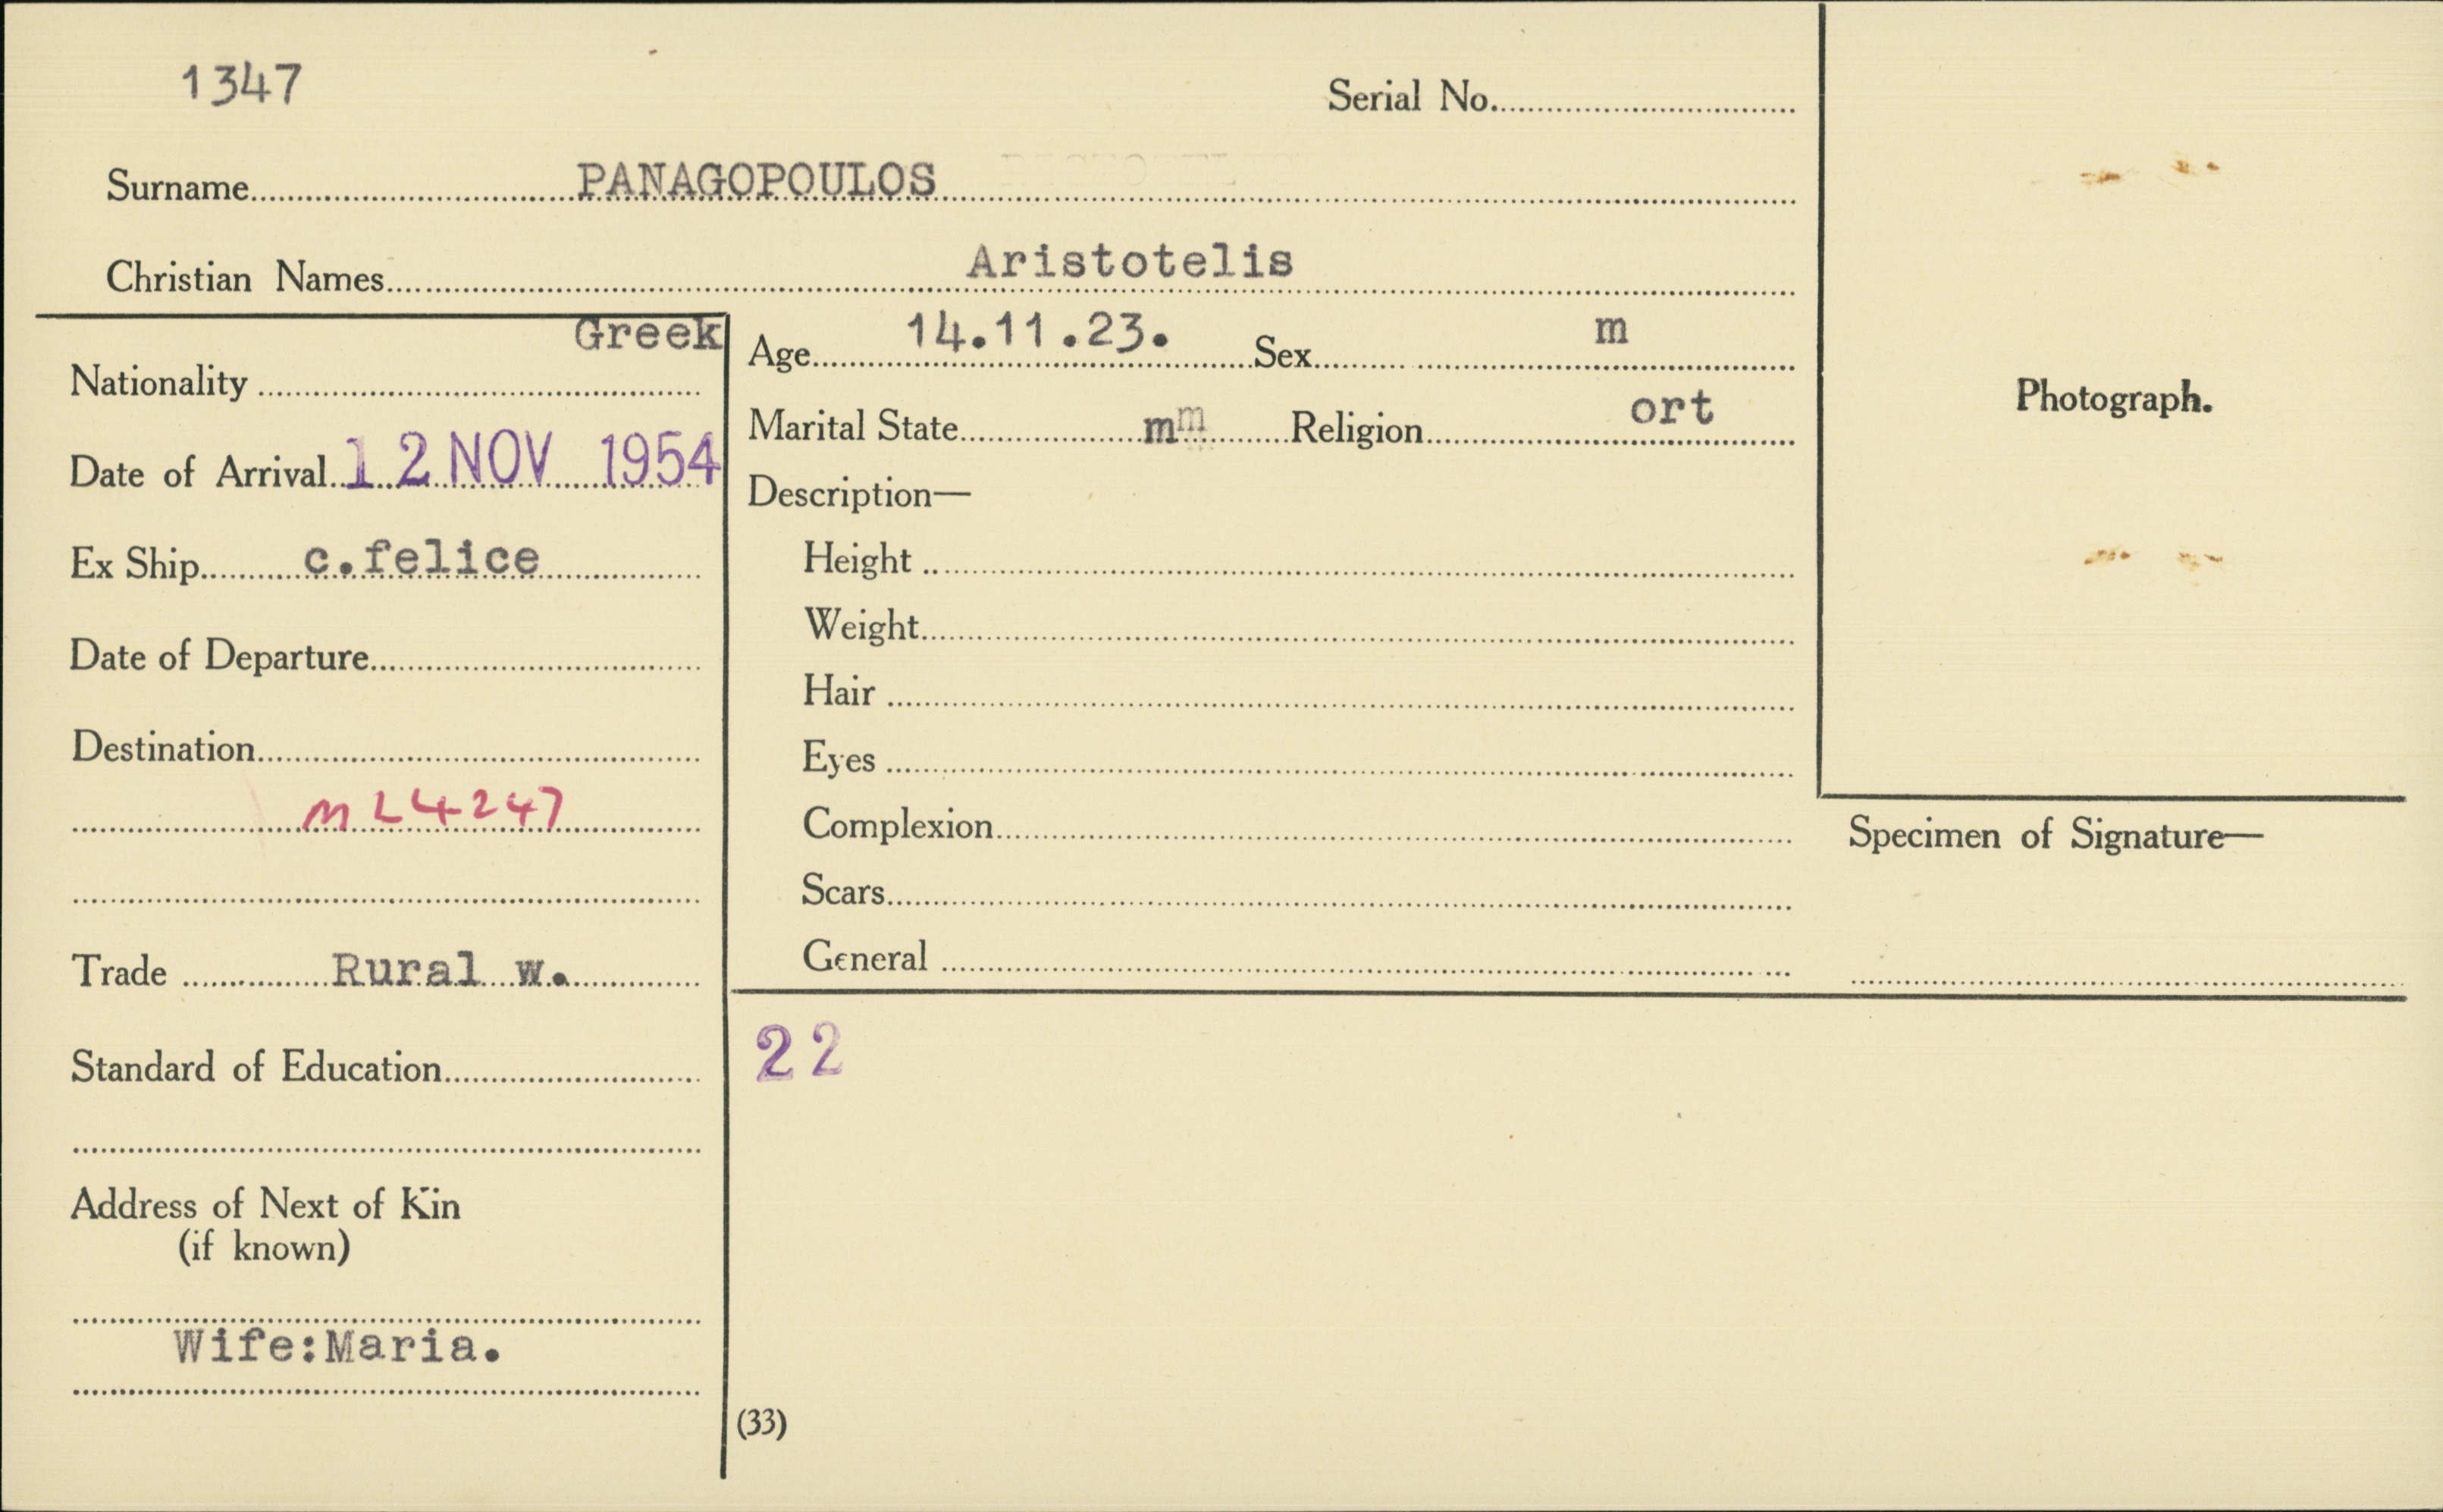 1347
Serial No.
Surname PANAGOPOULOS
Christian Names Aristotelis
Nationality Greek
Date of Arrival 12 NOV 1954
Ex Ship c.felice
Date of Departure
Destination
ML4247
Trade Rural w.
Standard of Education
Address of Next of Kin
(if known)
Wife:Maria.
Age 14.11.23. Sex m
Marital State mm Religion ort
Description—
Height
Weight
Hair
Eyes
Complexion
Scars
General
Photograph.
Specimen of Signature—
22
(33)